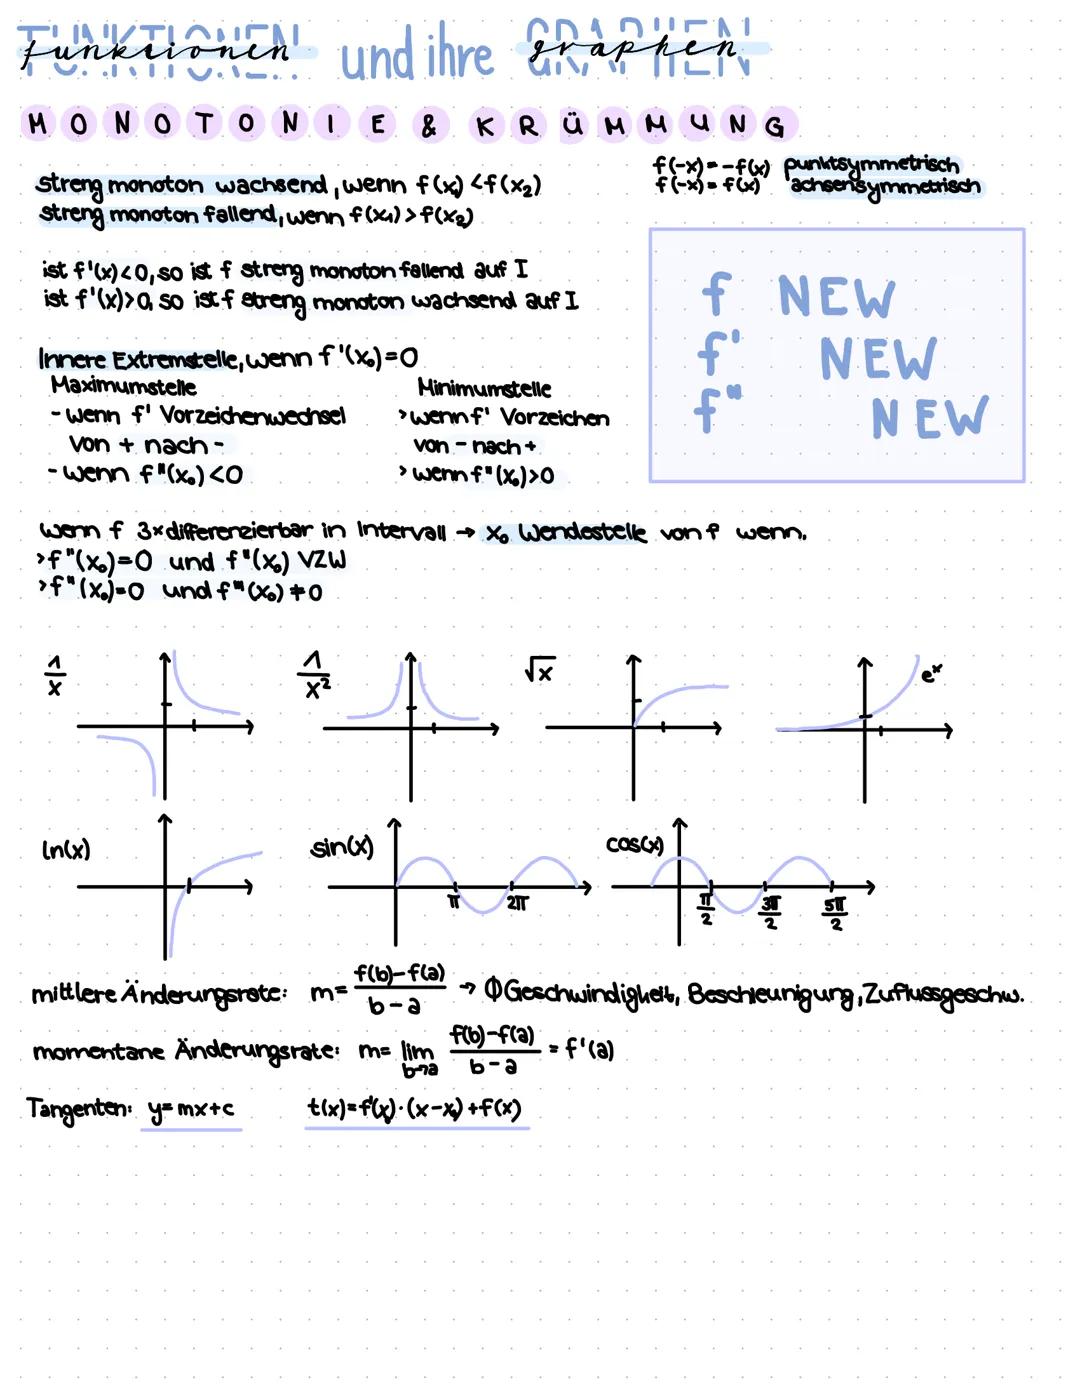 FUNKTIONEN funktionen und ihre GRAPHEN graphen
MONOTONIE & KRÜMMUNG
f(-x) = -f(x) punktsymmetrisch
f(-x) = f(x) achsensymmetrisch
streng monoton wachsend, wenn f(x₁) < f(x₂)
streng monoton fallend, wenn f(x₁) > f(x₂)
ist f'(x) < 0, so ist f streng monoton fallend auf I
ist f'(x) > 0, so ist f streng monoton wachsend auf I
f NEW
f' NEW
f" NEW
Innere Extremstelle, wenn f'(x₀) = 0
Maximumstelle
- wenn f' Vorzeichenwechsel
von + nach -
- wenn f"(x₀) < 0
Minimumstelle
> wenn f' Vorzeichen
von - nach +
> wenn f"(x₀) > 0
wenn f 3x differenzierbar in Intervall → x₀ Wendestelle von f wenn.
> f"(x₀) = 0 und f"(x₀) VZW
> f"(x₀) = 0 und f'''(x₀) ≠ 0
1/x
1/x²
√x
eˣ
ln(x)
sin(x)
π 2π
cos(x)
π/2 3π/2 5π/2
mittlere Änderungsrate: m = f(b)-f(a)/b-a → Ø Geschwindigkeit, Beschleunigung, Zuflussgeschw.
momentane Änderungsrate: m = lim b→a f(b)-f(a)/b-a = f'(a)
Tangenten: y = mx+c t(x) = f'(x₀)·(x-x₀)+f(x)